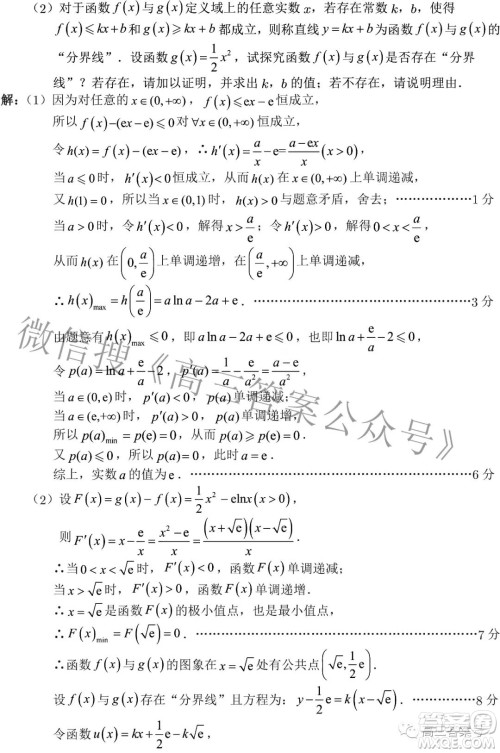 （2）对于函数 f(x) 与 g(x) 定义域上的任意实数 x，若存在常数 k，b，使得
f(x)≤kx+b 和 g(x)≥kx+b 都成立，则称直线 y=kx+b 为函数 f(x) 与 g(x) 的
“分界线”．设函数 g(x)=1/2 x²，试探究函数 f(x) 与 g(x) 是否存在“分界
线”？若存在，请加以证明，并求出 k，b 的值；若不存在，请说明理由．
解：（1）因为对任意的 x∈(0,+∞)，f(x)≤ex−e 恒成立，
所以 f(x)−(ex−e)≤0 对 ∀x∈(0,+∞) 恒成立，
令 h(x)=f(x)−(ex−e)，∴h′(x)=a/x−e=(a−ex)/x (x>0)，
当 a≤0 时，h′(x)<0 恒成立，从而 h(x) 在 x∈(0,+∞) 上单调递减，
又 h(1)=0，所以当 x∈(0,1) 时，h(x)>0 与题意矛盾，舍去；………………1 分
当 a>0 时，令 h′(x)<0，解得 x>a/e；令 h′(x)>0，解得 0<x<a/e，
从而 h(x) 在 (0,a/e) 上单调递增，在 (a/e,+∞) 上单调递减，
∴h(x)max=h(a/e)=a ln a−2a+e．………………3 分
由题意有 h(x)max≤0，即 a ln a−2a+e≤0，也即 ln a+e/a−2≤0，
令 p(a)=ln a+e/a−2，p′(a)=1/a−e/a²=(a−e)/a²，
当 a∈(0,e) 时，p′(a)<0，p(a) 单调递减；
当 a∈(e,+∞) 时，p′(a)>0，p(a) 单调递增，
所以 p(a)min=p(e)=0，从而 p(a)≥p(e)=0．
又 p(a)≤0，所以 p(a)=0，此时 a=e．
综上，实数 a 的值为 e．………………6 分
（2）设 F(x)=g(x)−f(x)=1/2 x²−elnx(x>0)，
则 F′(x)=x−e/x=(x²−e)/x=(x+√e)(x−√e)/x．
∴当 0<x<√e 时，F′(x)<0，函数 F(x) 单调递减；
当 x>√e 时，F′(x)>0，函数 F(x) 单调递增．
∴x=√e 是函数 F(x) 的极小值点，也是最小值点，
∴F(x)min=F(√e)=0．………………7 分
∴函数 f(x) 与 g(x) 的图象在 x=√e 处有公共点 (√e,1/2 e)．
设 f(x) 与 g(x) 存在“分界线”且方程为：y−1/2 e=k(x−√e)．………………8 分
令函数 u(x)=kx+1/2 e−k√e，
微信搜《高三答案公众号》